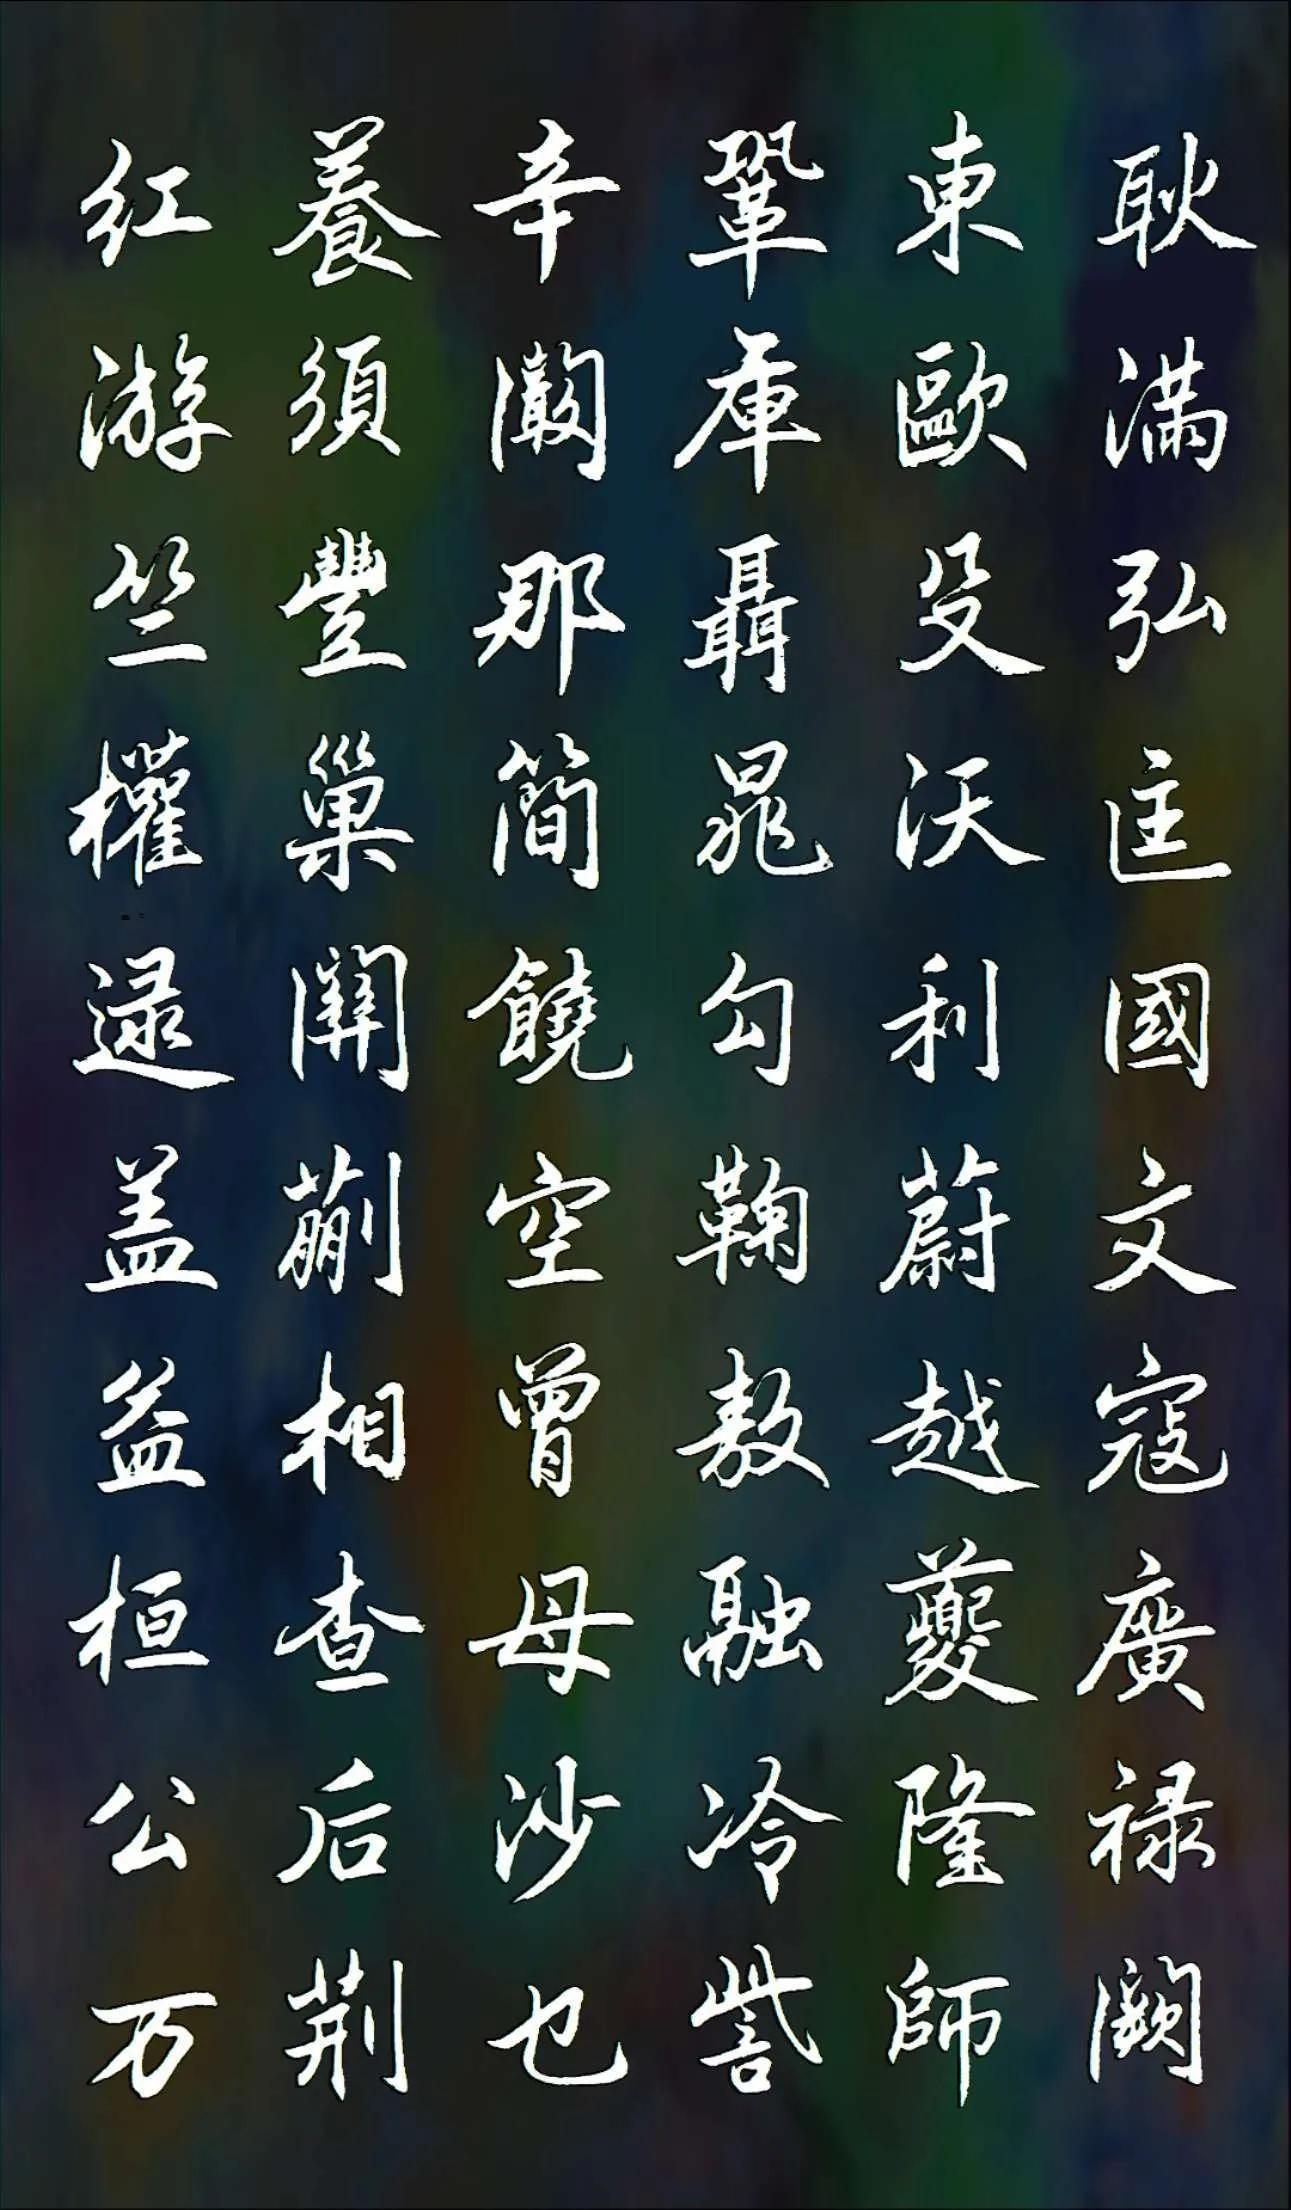 耿满弘匡國文寇廣禄闕
東歐殳沃利蔚越夔隆師
鞏庫聶晁勾鞠敖融冷訾
辛闞那簡饒空曾母沙乜
養須豐巢關蒯相查后荆
红游竺權逯盖益桓公万